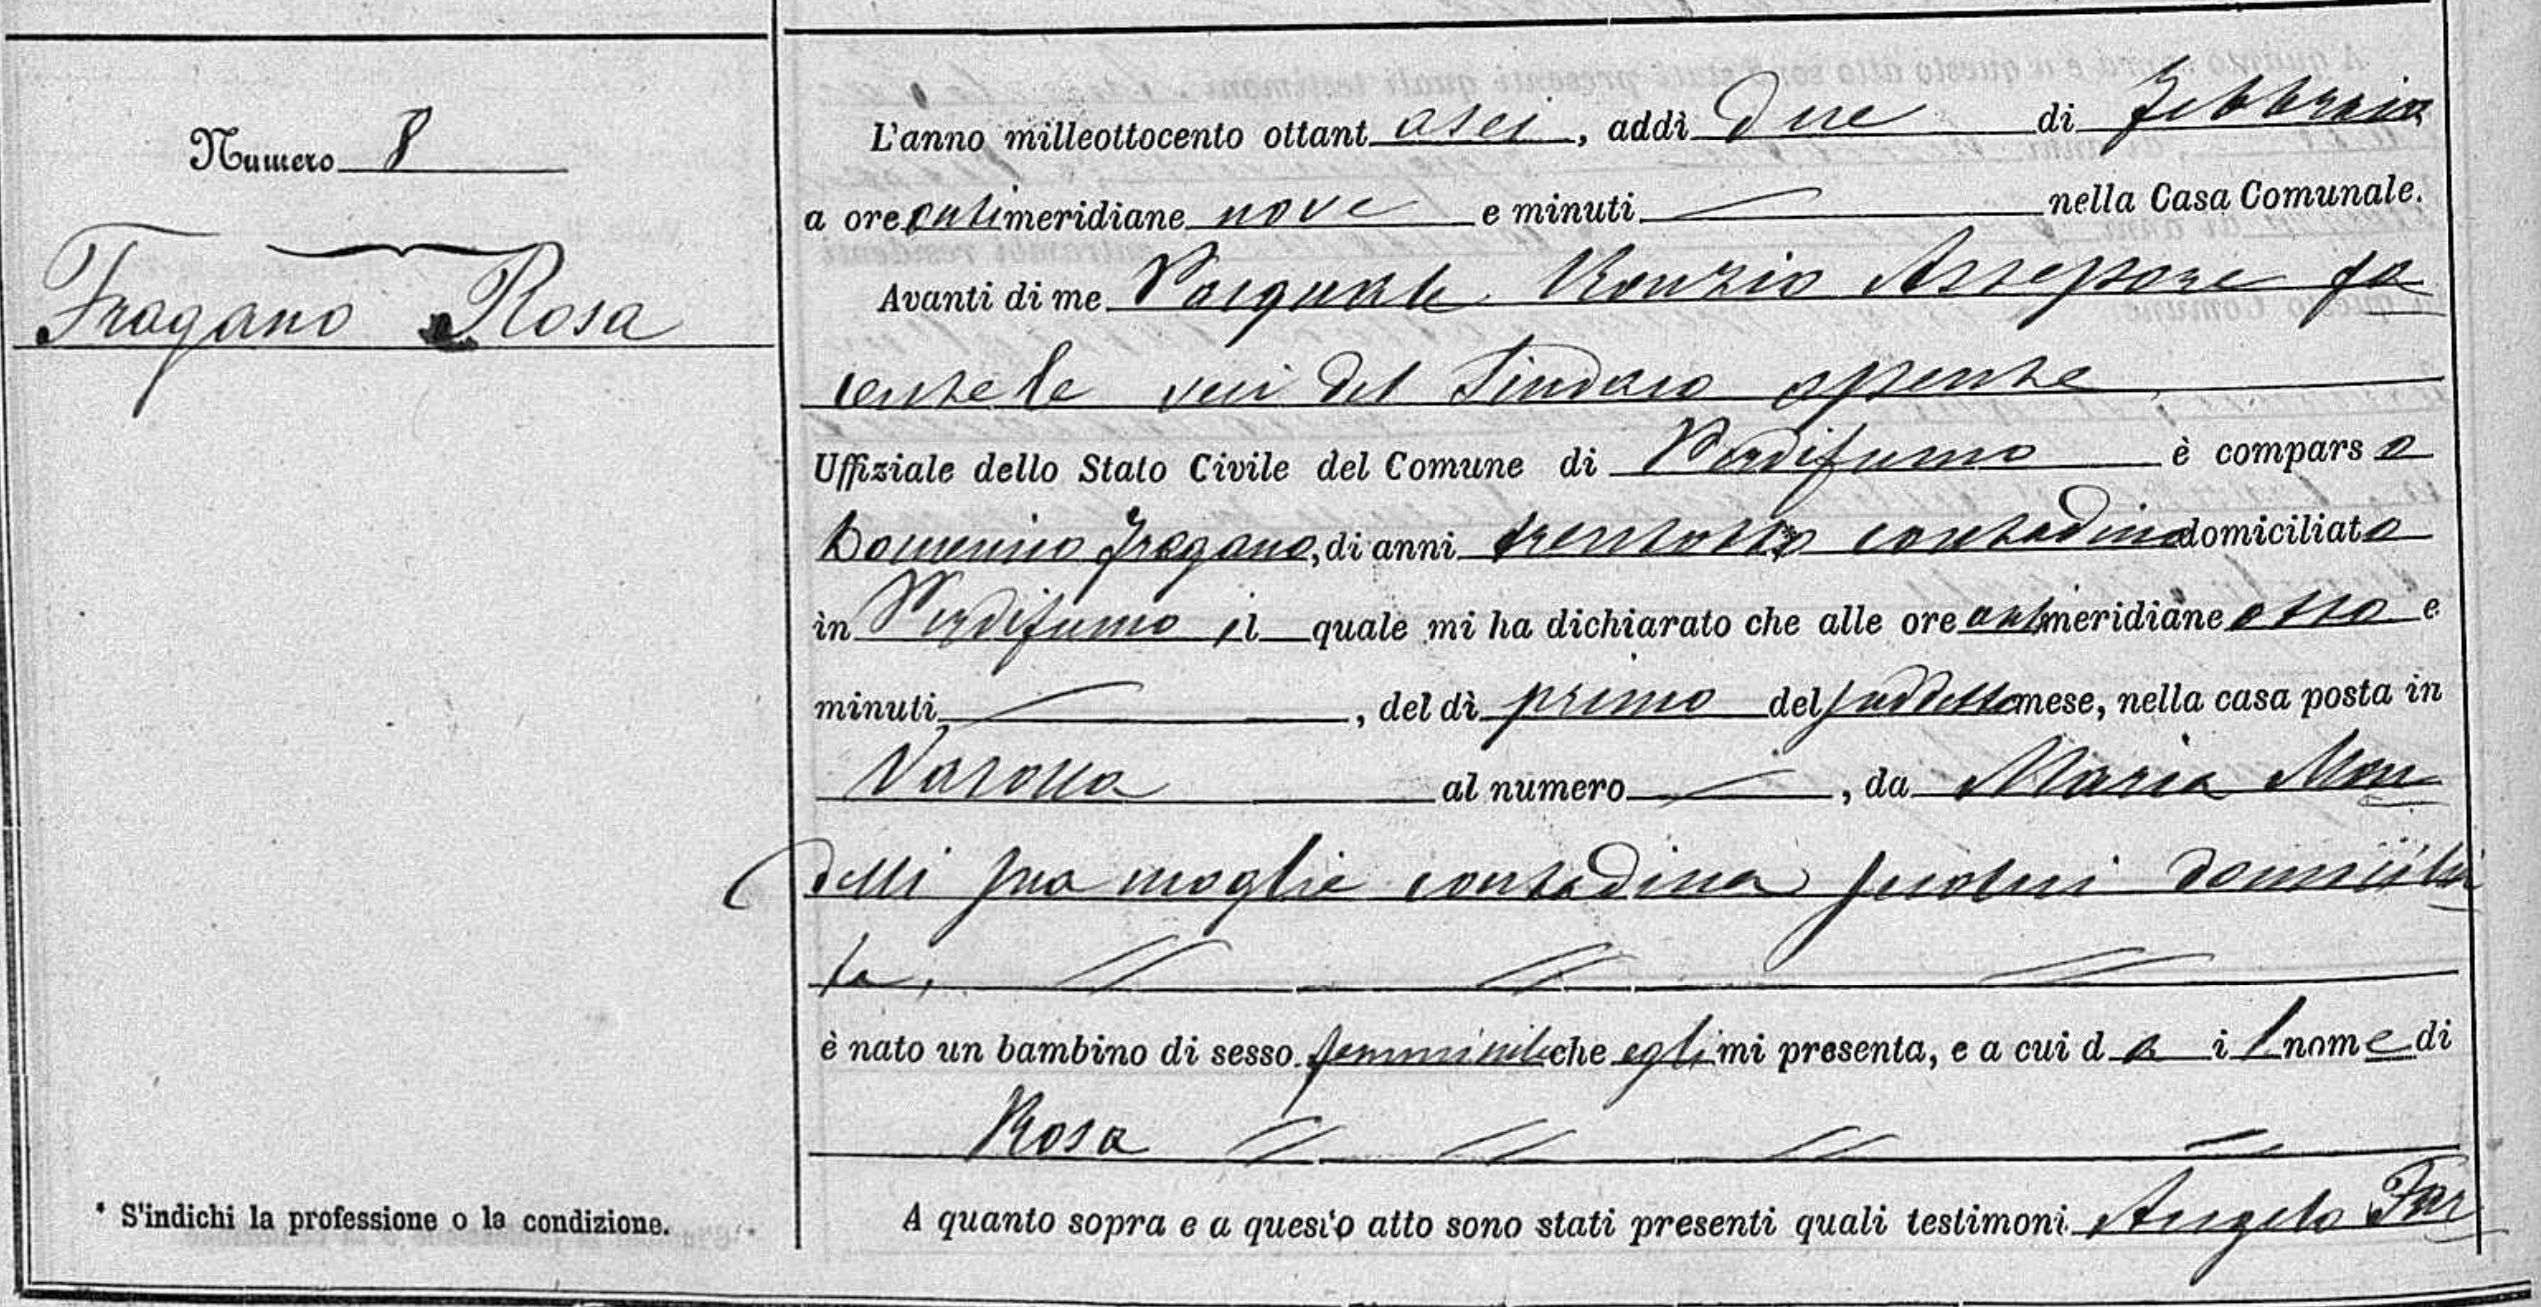 Numero 8
Fragano Rosa
L'anno milleottocento ottantasei, addì due di Febbraio
a ore antimeridiane nove e minuti — nella Casa Comunale.
Avanti di me Pasquale Assessore fa
cente le veci del Sindaco assente
Uffiziale dello Stato Civile del Comune di Perdifumo è comparso
Domenico Fragano, di anni trentotto contadino domiciliato
in Perdifumo il quale mi ha dichiarato che alle ore antimeridiane otto e
minuti —, del dì primo del suddetto mese, nella casa posta in
al numero —, da Maria Mon
delli sua moglie contadina seco lui domicilia
ta,
è nato un bambino di sesso femminile che egli mi presenta, e a cui dà il nome di
Rosa
A quanto sopra e a questo atto sono stati presenti quali testimoni Angelo Far
* S'indichi la professione o la condizione.